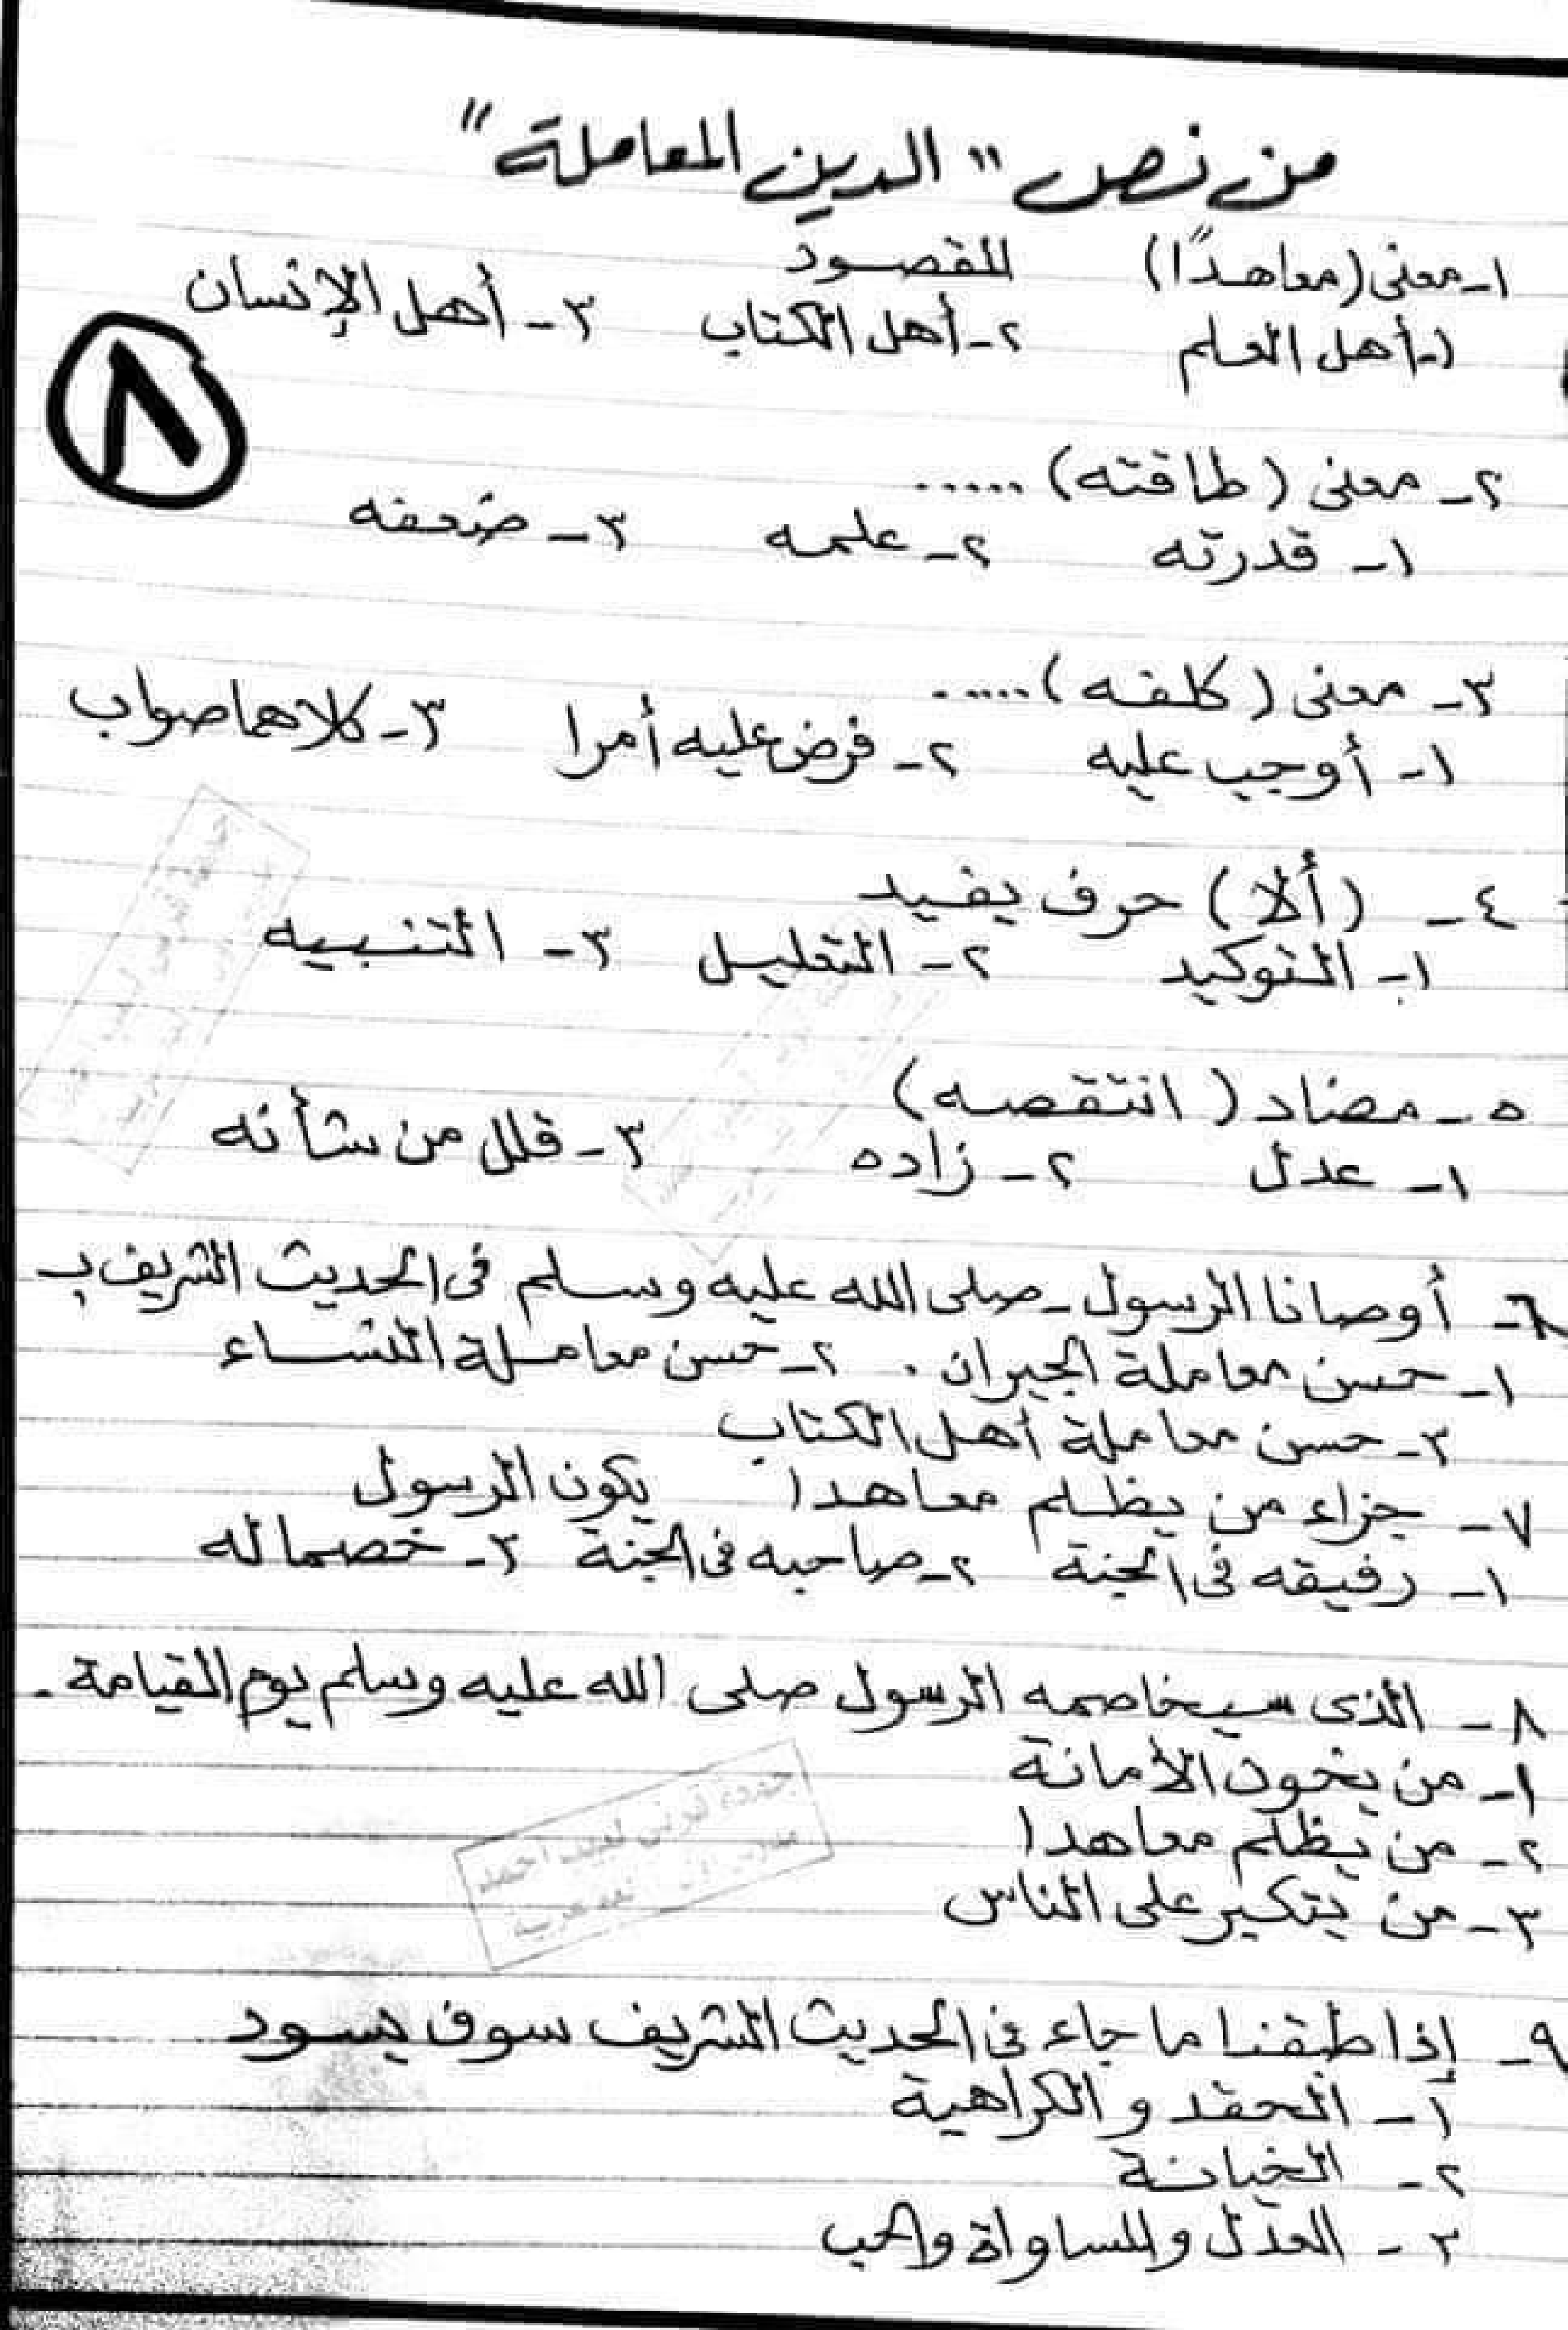 من نص "الدين المعاملة"
١- معنى (معاهدًا) المقصود
١- أهل العلم ٢- أهل الكتاب ٣- أهل الإنسان
٨
٢- معنى (طاقته) ......
١- قدرته ٢- علمه ٣- ضعفه
٣- معنى (كلفه) ......
١- أوجب عليه ٢- فرض عليه أمرا ٣- كلاهما صواب
٤- (ألا) حرف يفيد
١- التوكيد ٢- التعليل ٣- التنبيه
٥- مضاد (انتقصه)
١- عدل ٢- زاده ٣- قلل من شأنه
٦- أوصانا الرسول - صلى الله عليه وسلم فى الحديث الشريف بـ
١- حسن معاملة الجيران . ٢- حسن معاملة النساء
٣- حسن معاملة أهل الكتاب
٧- جزاء من يظلم معاهدا يكون الرسول
١- رفيقه فى الجنة ٢- صاحبه فى الجنة ٣- خصما له
٨- الذى سيخاصمه الرسول صلى الله عليه وسلم يوم القيامة .
١- من يخون الأمانة
٢- من يظلم معاهدا
٣- من يتكبر على الناس
٩- إذا طبقنا ما جاء فى الحديث الشريف سوف يسود
١- الحقد والكراهية
٢- الخيانة
٣- العدل والمساواة والحب